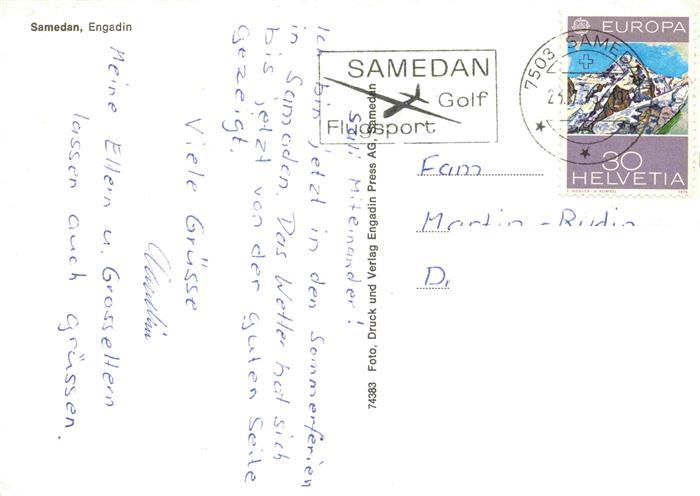 Samedan, Engadin
Sali Miteinander!
Ich bin jetzt in den Sommerferien
in Samedan. Das Wetter hat sich
bis jetzt von der guten Seite
gezeigt.
Viele Grüsse
Meine Eltern u. Grosseltern
lassen auch grüssen.
74383 Foto, Druck und Verlag Engadin Press AG, Samedan
SAMEDAN
Golf
Flugsport
7503 SAMED
EUROPA
30
HELVETIA
Fam
Martin-Rudin
D